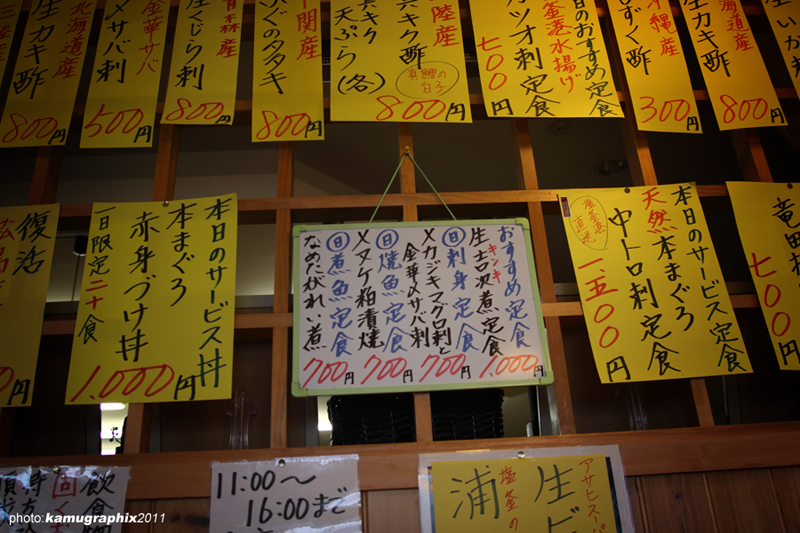 北海道産
生カキ酢
800円
金華サバ
〆サバ刺
500円
生くじら刺
800円
ふぐのタタキ
800円
真鱈の白子
天ぷら(各)
800円
本日のおすすめ定食
塩釜港水揚げ
カツオ刺定食
700円
沖縄産
もずく酢
300円
北海道産
生カキ酢
800円
復活
本日のサービス丼
本まぐろ
赤身づけ丼
一日限定二十食
1,000円
おすすめ定食
キンキ
生吉次煮定食
1,000円
日刺身定食
メカジキマグロ刺と
金華〆サバ刺
700円
日焼魚定食
メヌケ粕漬焼
700円
日煮魚定食
なめたがれい煮
700円
塩釜港直送
本日のサービス定食
天然本まぐろ
中トロ刺定食
一、五〇〇円
竜田
七〇〇円
飲食物
固く
11:00〜
16:00まで
アサヒスーパ
生ビ
塩釜の
浦
photo:kamugraphix2011